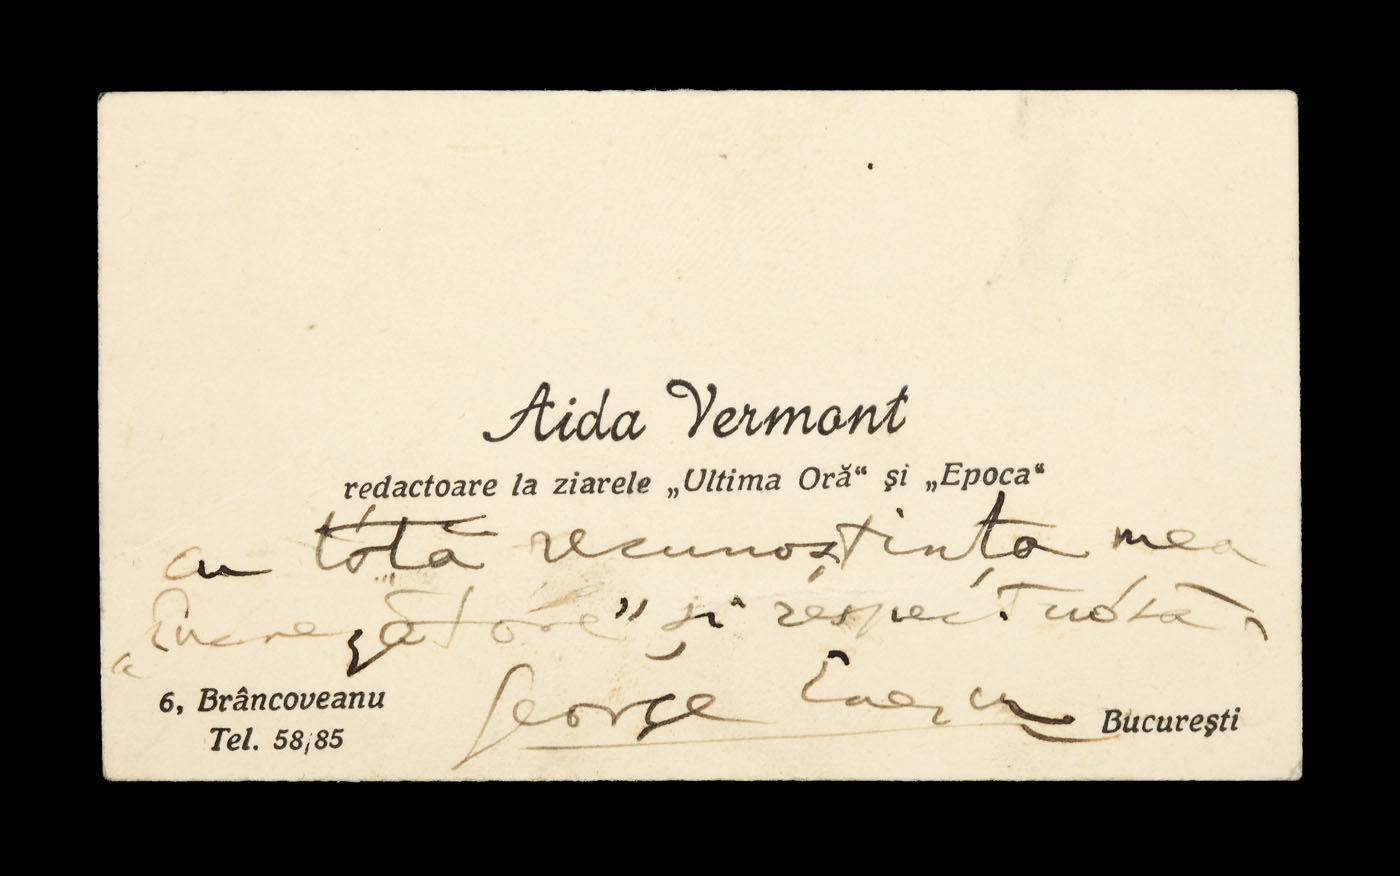 Aida Vermont
redactoare la ziarele „Ultima Oră“ şi „Epoca“
cu tótă recunoştinţa mea
şi respectuósă,
George Enescu
6, Brâncoveanu
Tel. 58/85
Bucureşti